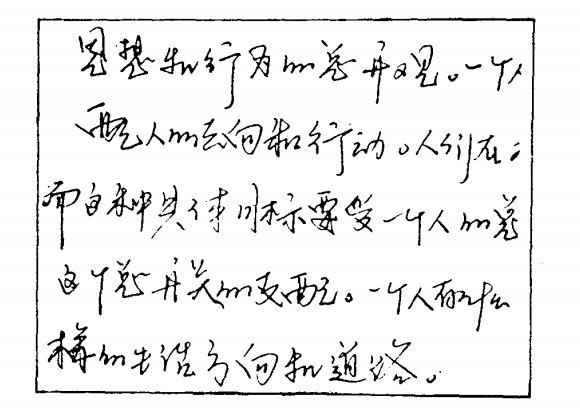 思想和行为的总开关。一个人
配人的志向和行动。人们在
而各种具体目标要受一个人的总
这个总开关的支配。一个人有什么
样的生活方向和道路。